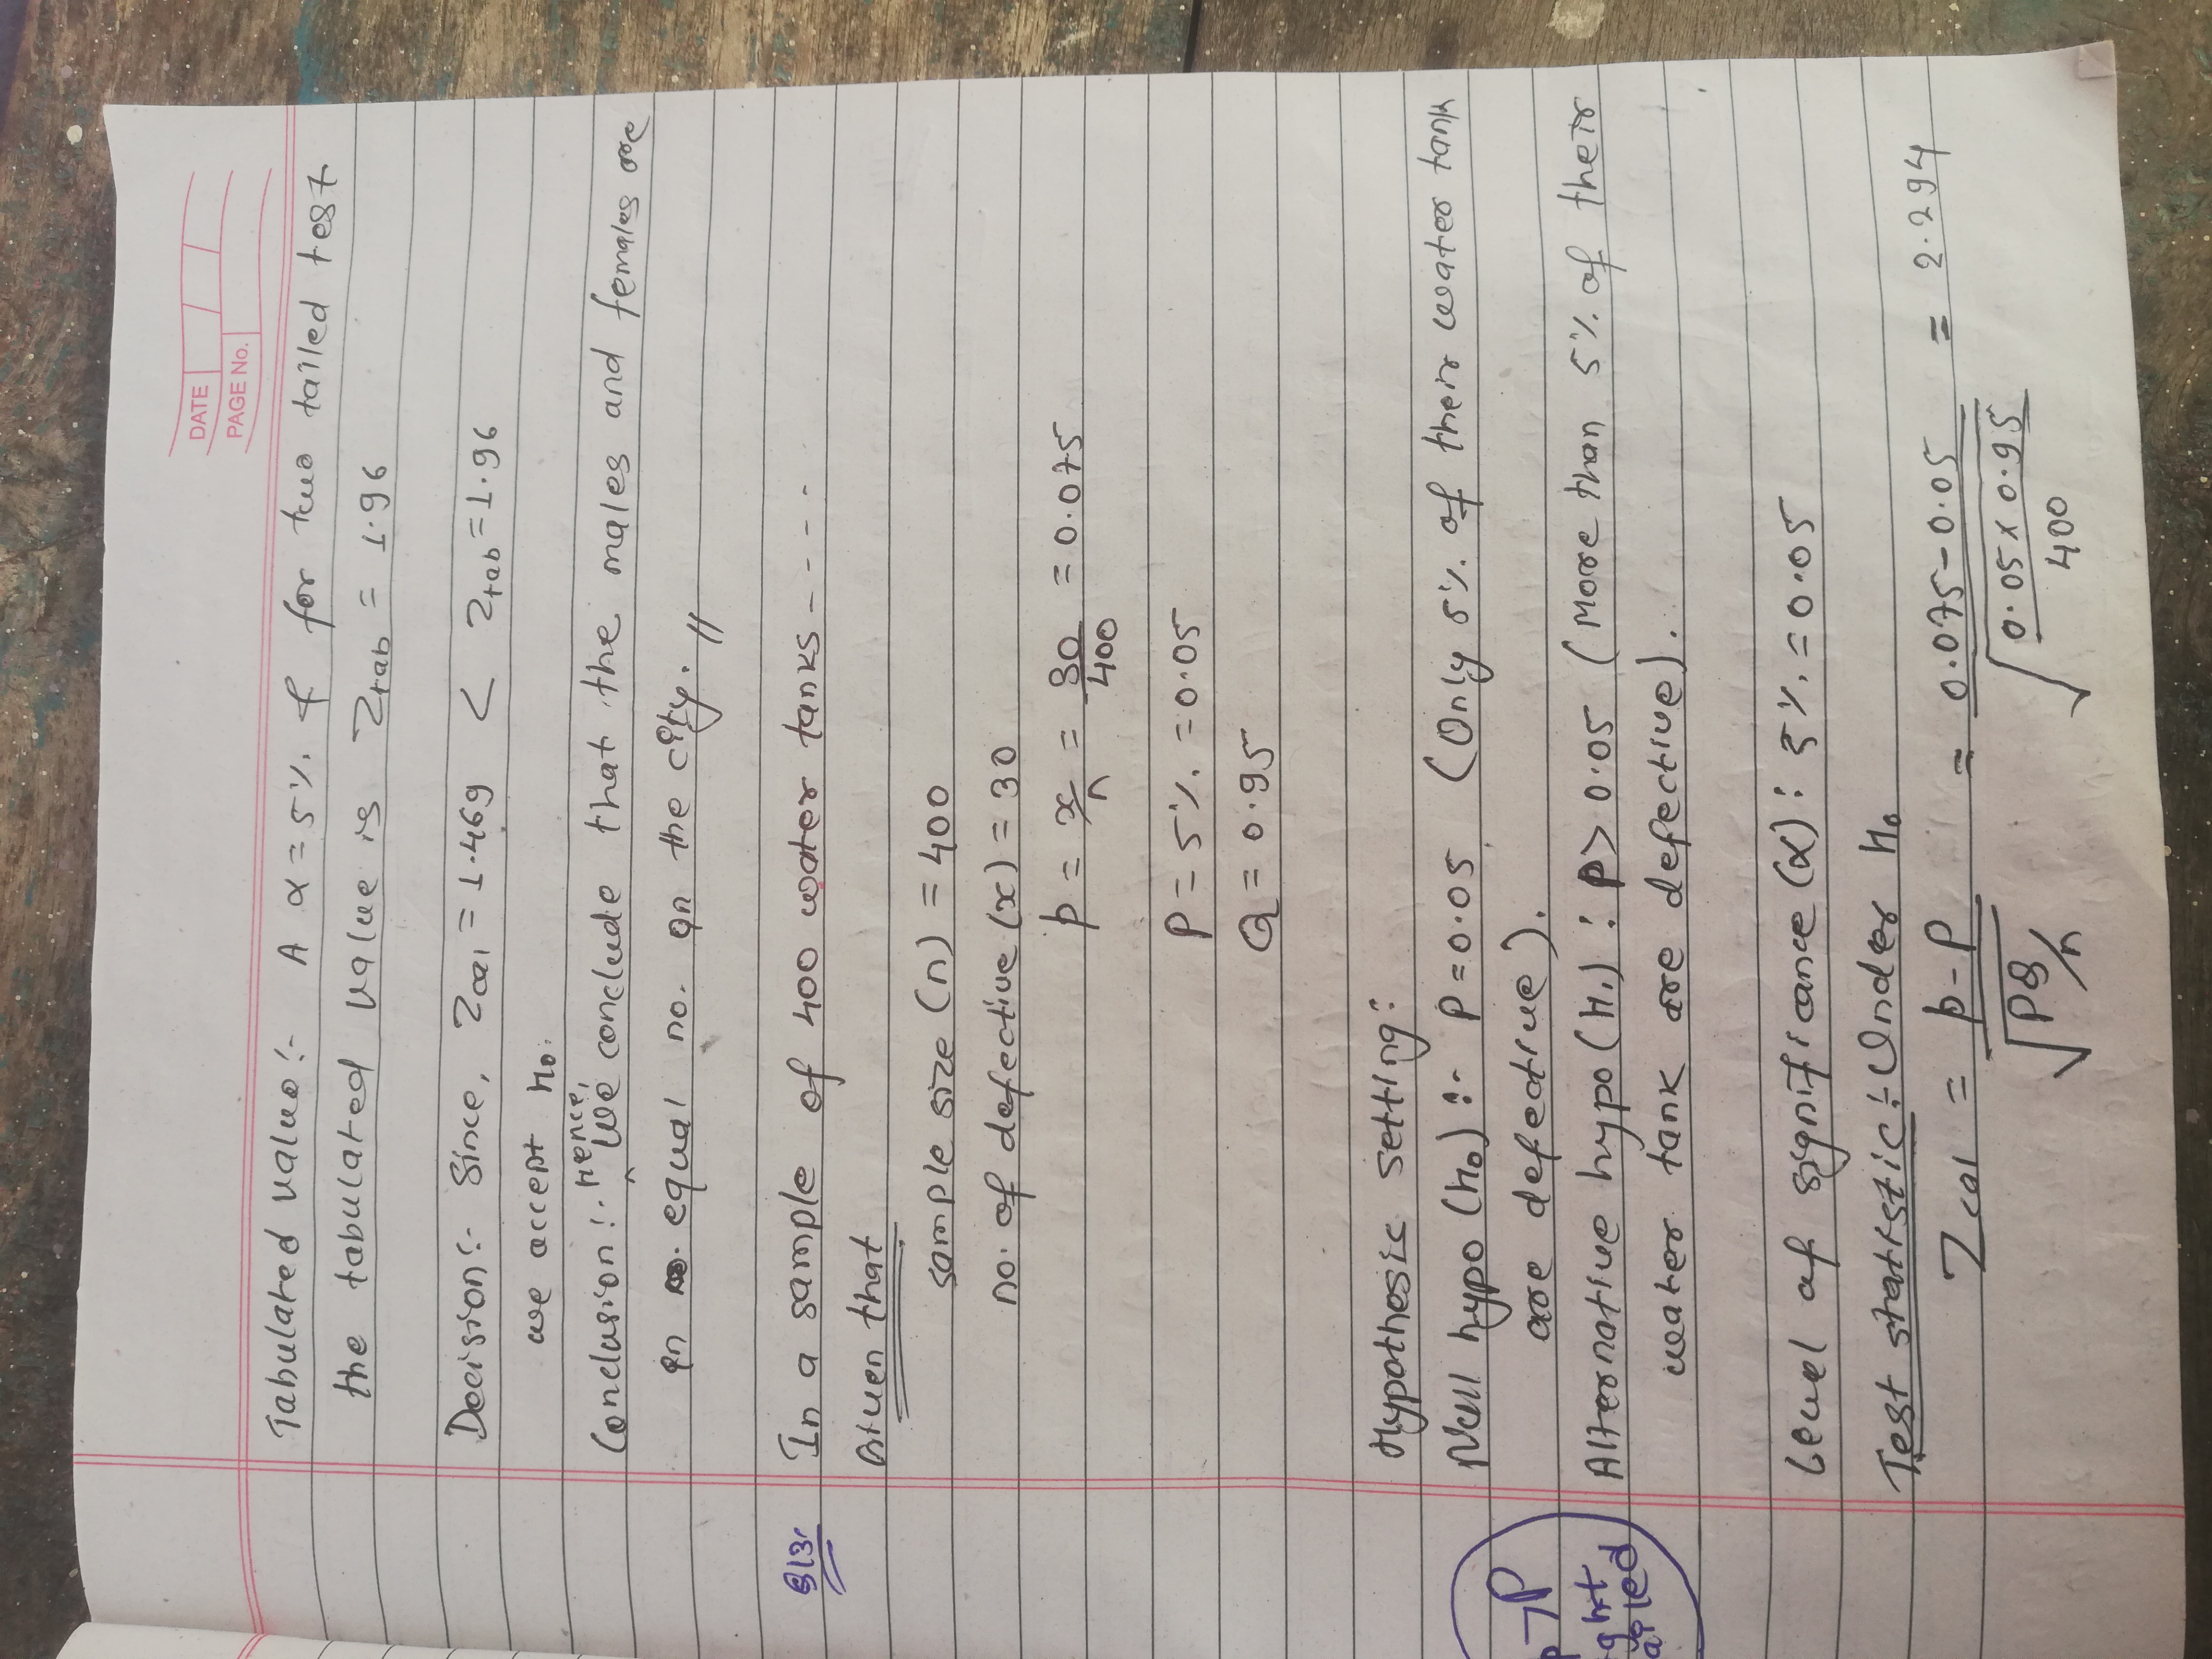 DATE
PAGE No.
Tabulated value :- A α = 5%. & for two tailed test
the tabulated value is Ztab = 1.96
Decision :- Since, Zcal = 1.469 < Ztab = 1.96
we accept H0.
Conclusion :- Hence, we conclude that the males and females are
in equal no. in the city. //
In a sample of 400 water tanks - - - -
Given that
sample size (n) = 400
no. of defective (x) = 30
p = x/n = 30/400 = 0.075
P = 5%. = 0.05
Q = 0.95
Hypothesis setting:
Null hypo (H0) :- P = 0.05 (Only 5%. of their water tank
are defective).
p > P
Alternative hypo (H1) : P > 0.05 (More than 5%. of their
ght
ailed
water tank are defective).
Level of significance (α) : 5%. = 0.05
Test statistic :- Under H0
Zcal = p - P / √PQ/n = 0.075 - 0.05 / √0.05 x 0.95 / 400 = 2.294